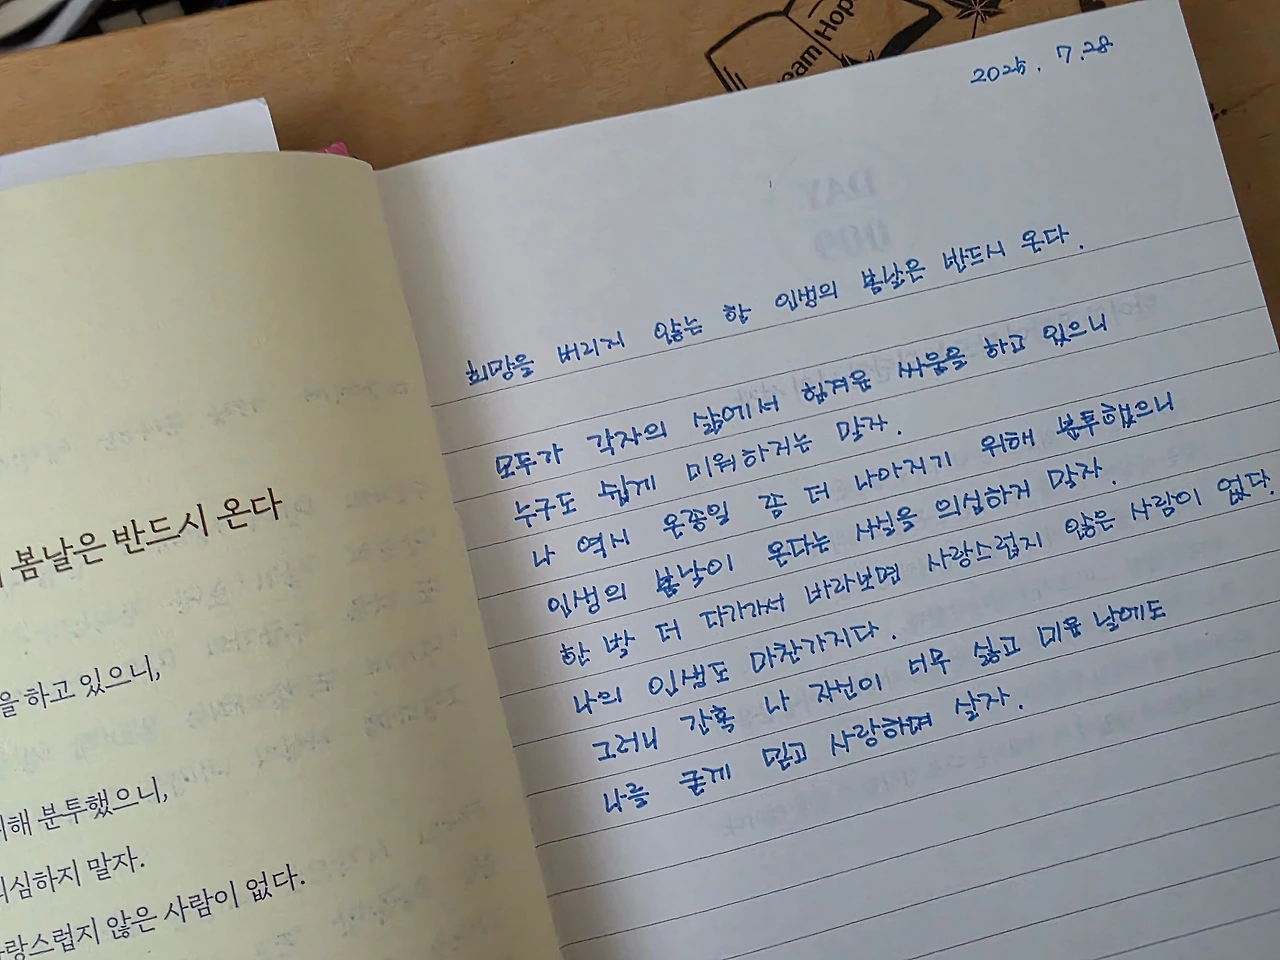 eam Hop
2025. 7.28
DAY
009
희망을 버리지 않는 한 인생의 봄날은 반드시 온다.
모두가 각자의 삶에서 힘겨운 싸움을 하고 있으니
누구도 쉽게 미워하지는 말자.
나 역시 온종일 좀 더 나아지기 위해 분투했으니
인생의 봄날이 온다는 사실을 의심하지 말자.
한 발 더 다가가서 바라보면 사랑스럽지 않은 사람이 없다.
나의 인생도 마찬가지다.
그러니 간혹 나 자신이 너무 싫고 미운 날에도
나를 굳게 믿고 사랑하며 살자.
봄날은 반드시 온다
을 하고 있으니,
위해 분투했으니,
의심하지 말자.
사랑스럽지 않은 사람이 없다.